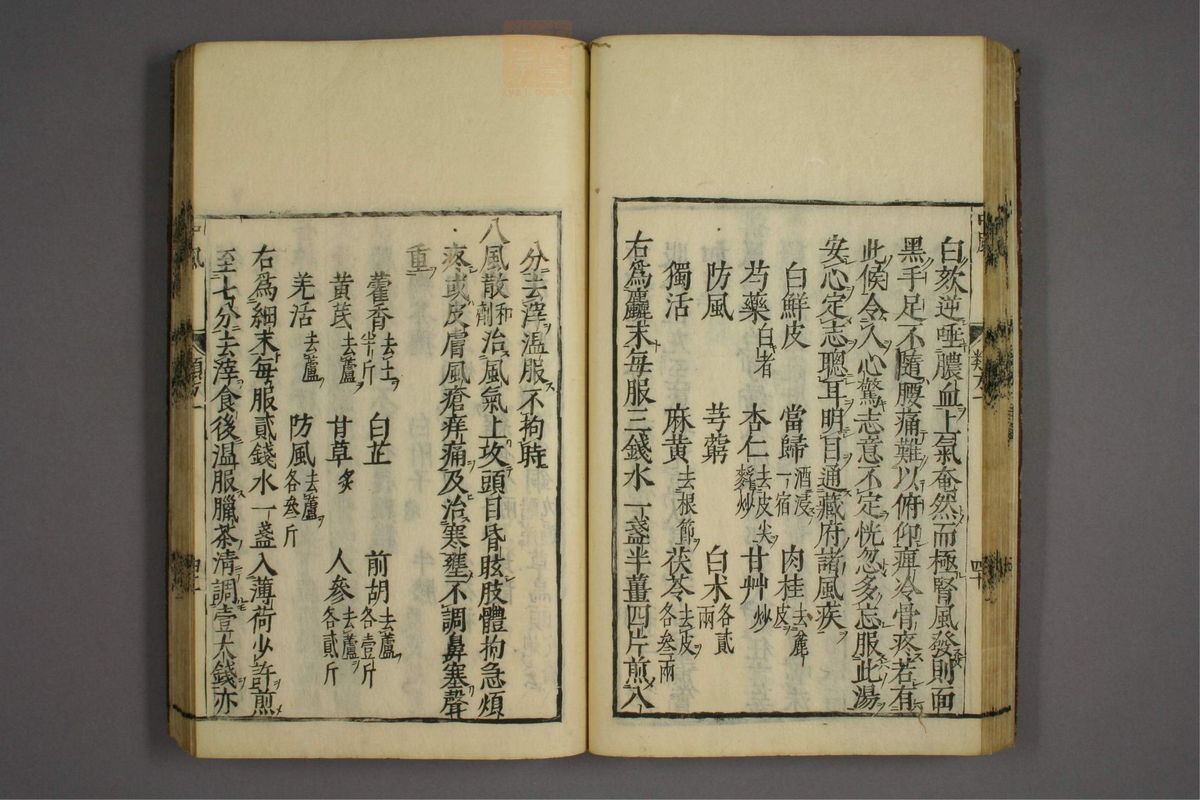 白欬逆唾膿血上氣奄然而極腎風發則面
黑手足不隨腰痛難以俯仰痺冷骨疼若有
此候令人心驚志意不定恍忽多忘服此湯
安心定志聰耳明目通藏府諸風疾
白鮮皮　當歸酒浸一宿　肉桂去麄皮
芍藥白者　杏仁去皮尖麩炒　甘艸炒
防風　芎藭　白术各貳兩
獨活　麻黄去根節　茯苓去皮各叁兩
右爲麤末每服三錢水一盞半薑四片煎八
分去滓温服不拘時
八風散和劑治風氣上攻頭目昏眩肢體拘急煩
疼或皮膚風瘡痒痛及治寒壅不調鼻塞聲
重
藿香去土半斤　白芷　前胡去蘆各壹斤
黄芪去蘆　甘草炙　人參去蘆各貳斤
羌活去蘆　防風去蘆各叁斤
右爲細末每服貳錢水一盞入薄荷少許煎
至七分去滓食後温服臘茶清調壹大錢亦